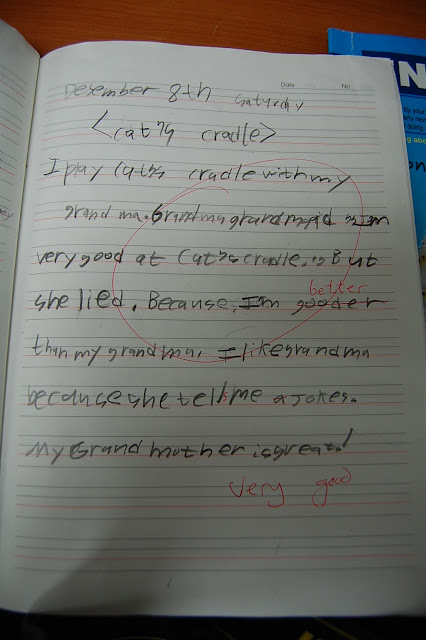 Date No
Desember 8th Saturday
<cat's cradle>
I play Cat's cradle with my
grand ma. Grandma grandma said "I'm
very good at Cat's cradle." But
better
she lied. Because, I'm gooder
than my grandma. I like grandma
because she tells me a jokes.
My Grand mother is great!
Very good
N